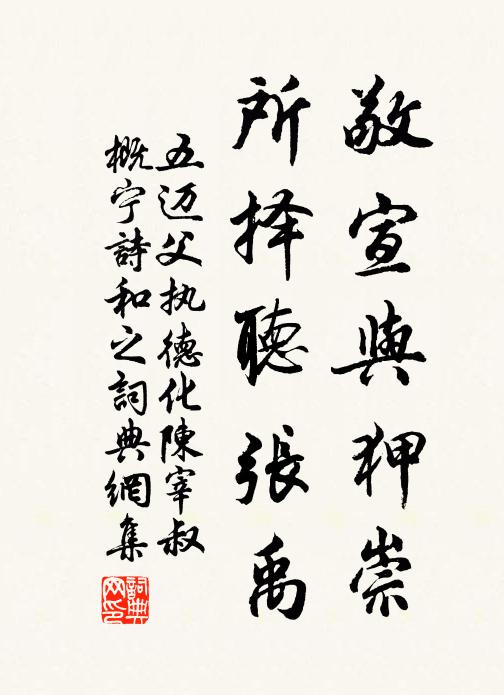 敬宣與狎崇
所择聽張禹
五迈父执德化陳宰叔
概宁詩和之詞典網集
詞典网印